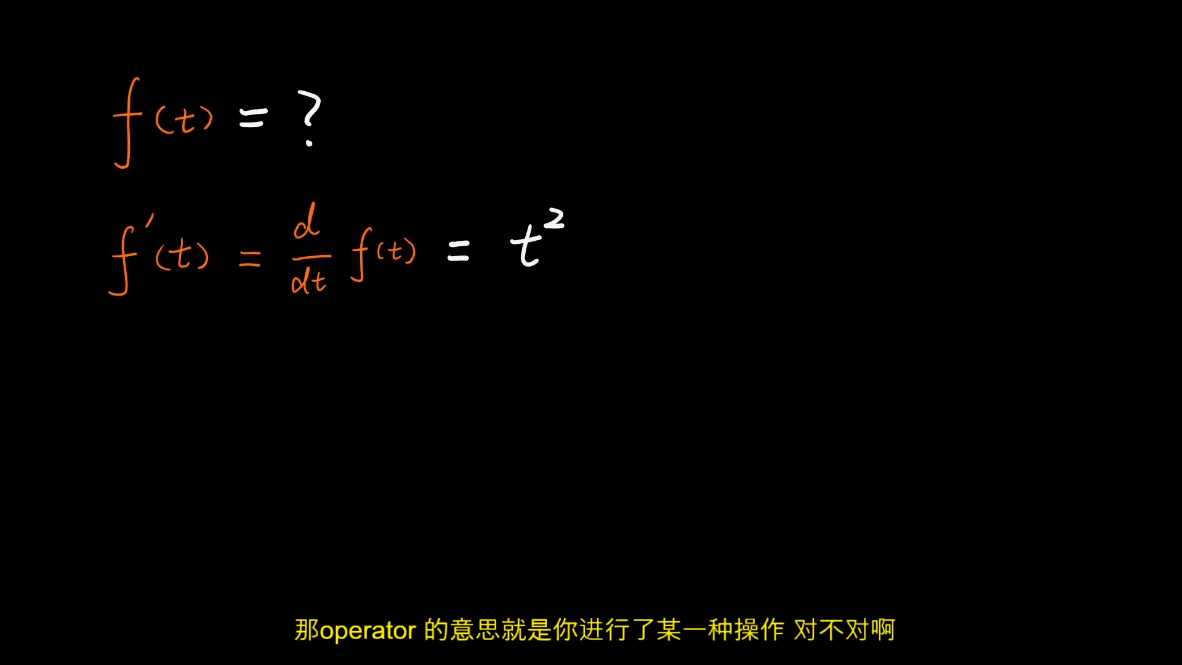 f(t) = ?
f'(t) = d/dt f(t) = t²
那operator 的意思就是你进行了某一种操作 对不对啊